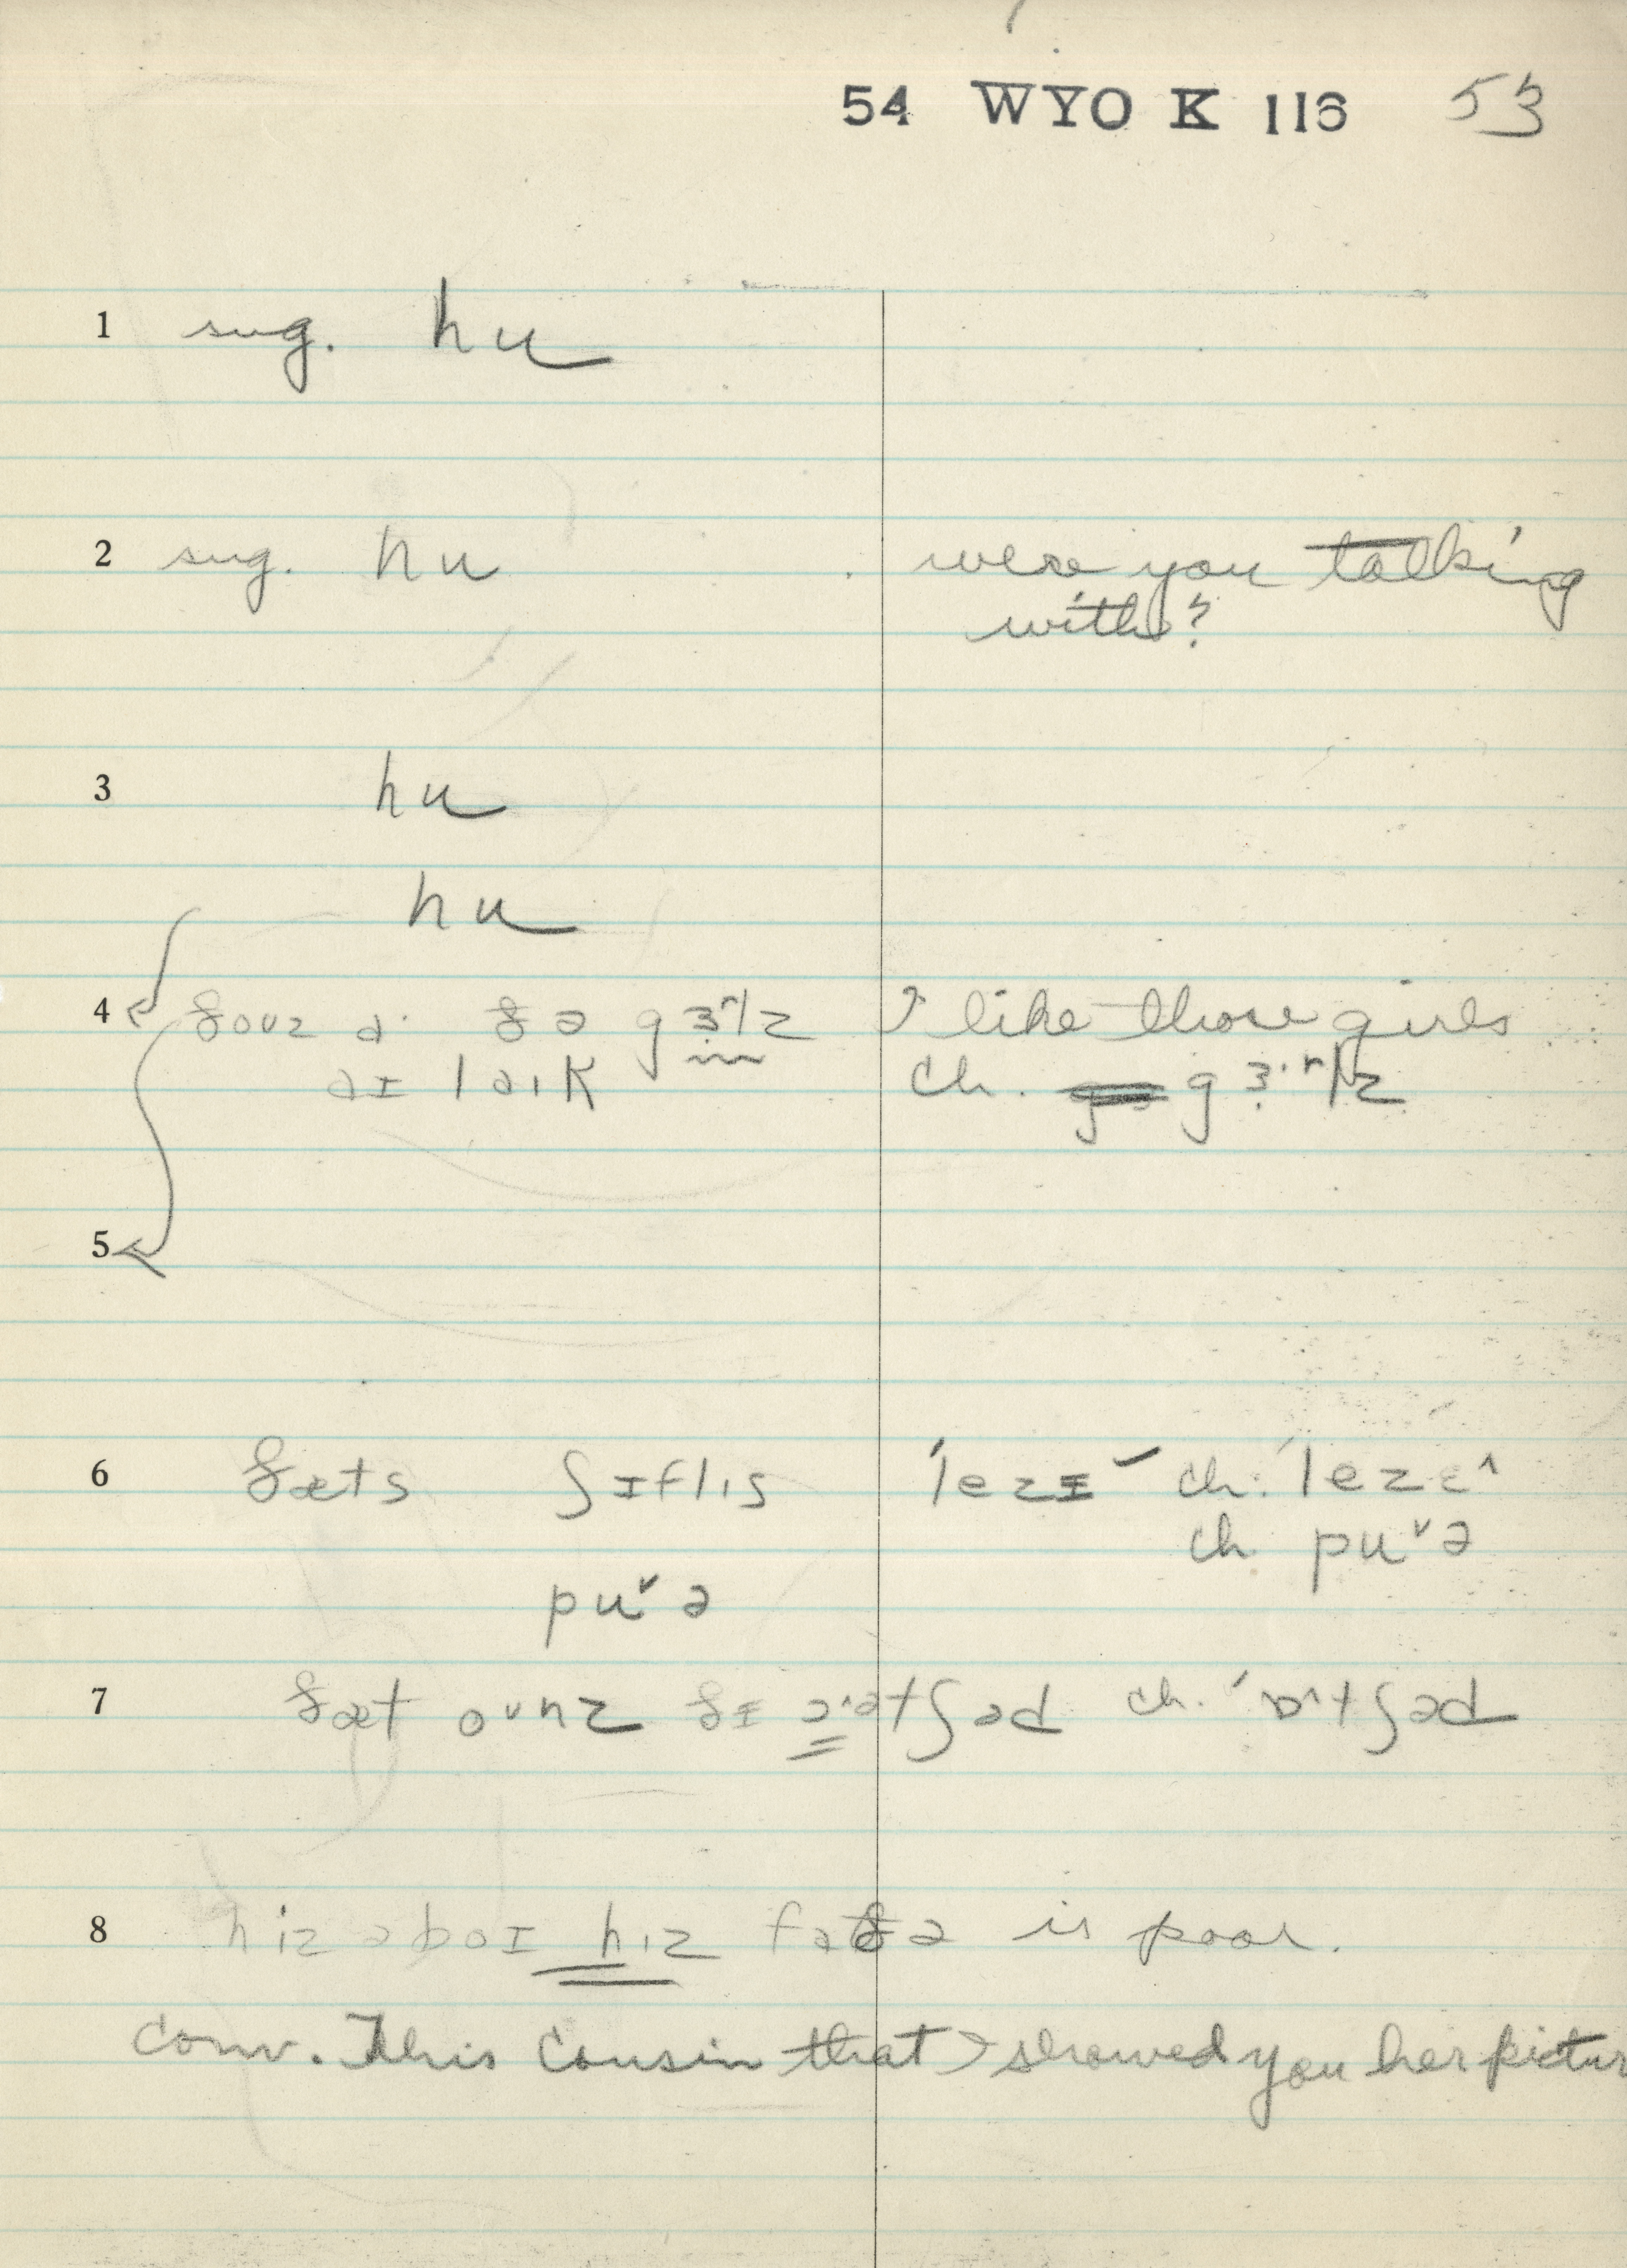 54 WYO K 116 53
1 sug. hu
2 sug. hu were you talking
with?
3 hu
hu
4 ðouz ðə gɜrlz I like those girls
aɪ laɪk ch. gɜ·rlz
5
6 ðæts ʃɪflɪs ˈlezɪ ch. ˈlezɛ^
ch puˇə
puˇə
7 ðæt oᴜnz ðɪ ch. ˈɒ^tʃəd
8 hiz ə bɔɪ hɪz is poor.
conv. This cousin that I showed you her pictur